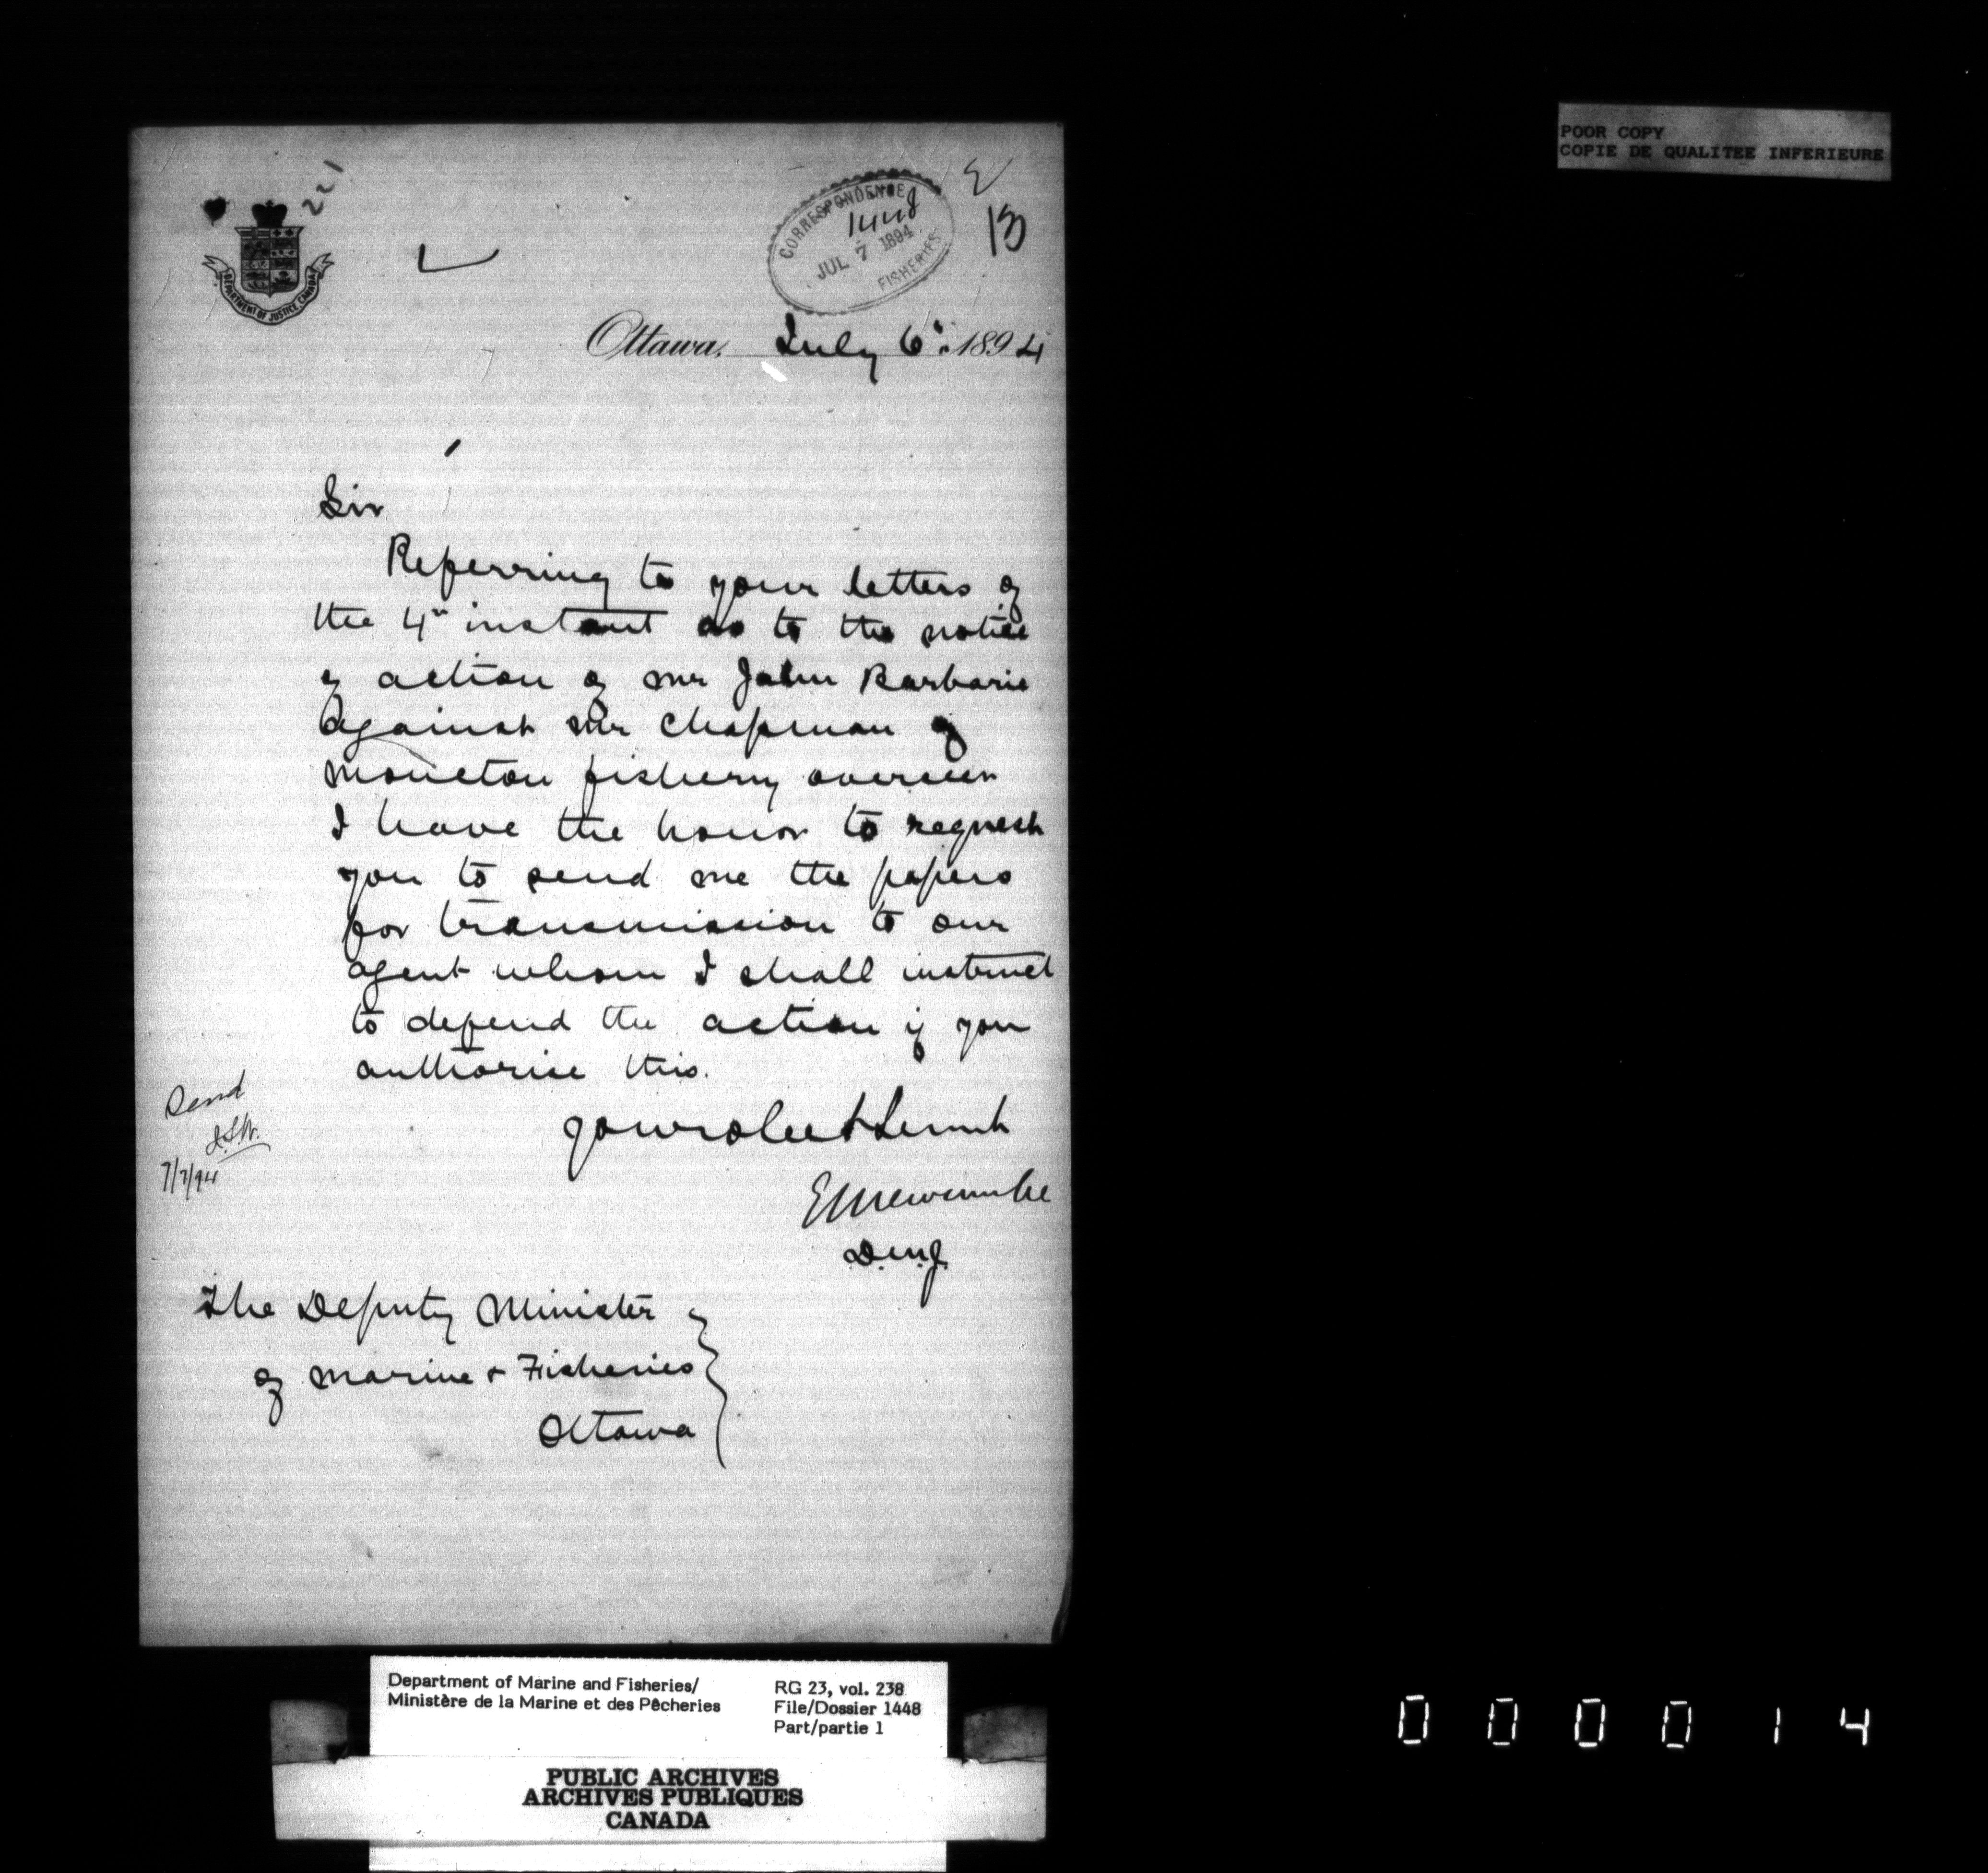 POOR COPY
COPIE DE QUALITEE INFERIEURE
221
DEPARTMENT OF JUSTICE, CANADA
CORRESPONDENCE
1448
JUL 7 1894
FISHERIES
13
Ottawa, July 6th 1894
Sir
Referring to your letters of
the 4th instant as to the notice
of action of Mr John Barbarie
against Mr Chapman of
Moncton fishery overseer
I have the honor to request
you to send me the papers
for transmission to our
agent whom I shall instruct
to defend the action if you
authorise this.
Your obedt Servant
E L Newcombe
D.M.J.
Send
7/7/94
The Deputy Minister
of Marine & Fisheries
Ottawa
Department of Marine and Fisheries/
Ministère de la Marine et des Pêcheries
RG 23, vol. 238
File/Dossier 1448
Part/partie 1
PUBLIC ARCHIVES
ARCHIVES PUBLIQUES
CANADA
000014